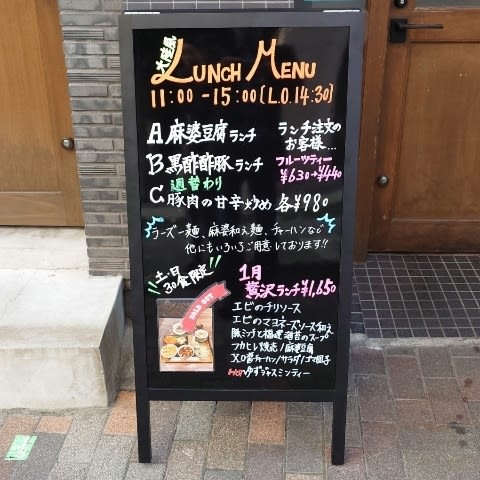 LUNCH MENU
11:00 -15:00 [L.O.14:30]
A 麻婆豆腐ランチ
B 黒酢酢豚ランチ
週替わり
C 豚肉の甘辛炒め 各¥980
ランチ注文の
お客様…
フルーツティー
¥630→¥440
ラーズー麺、麻婆和え麺、チャーハンなど
他にもいろいろご用意しております!!
土・日
30食限定
SOLD OUT
1月
贅沢ランチ¥1,650
エビのチリソース
エビのマヨネーズソース和え
豚ミンチと福建海苔のスープ
フカヒレ焼売/麻婆豆腐
XO醤チャーハン/サラダ/ゴマ団子
HOTゆずジャスミンティー